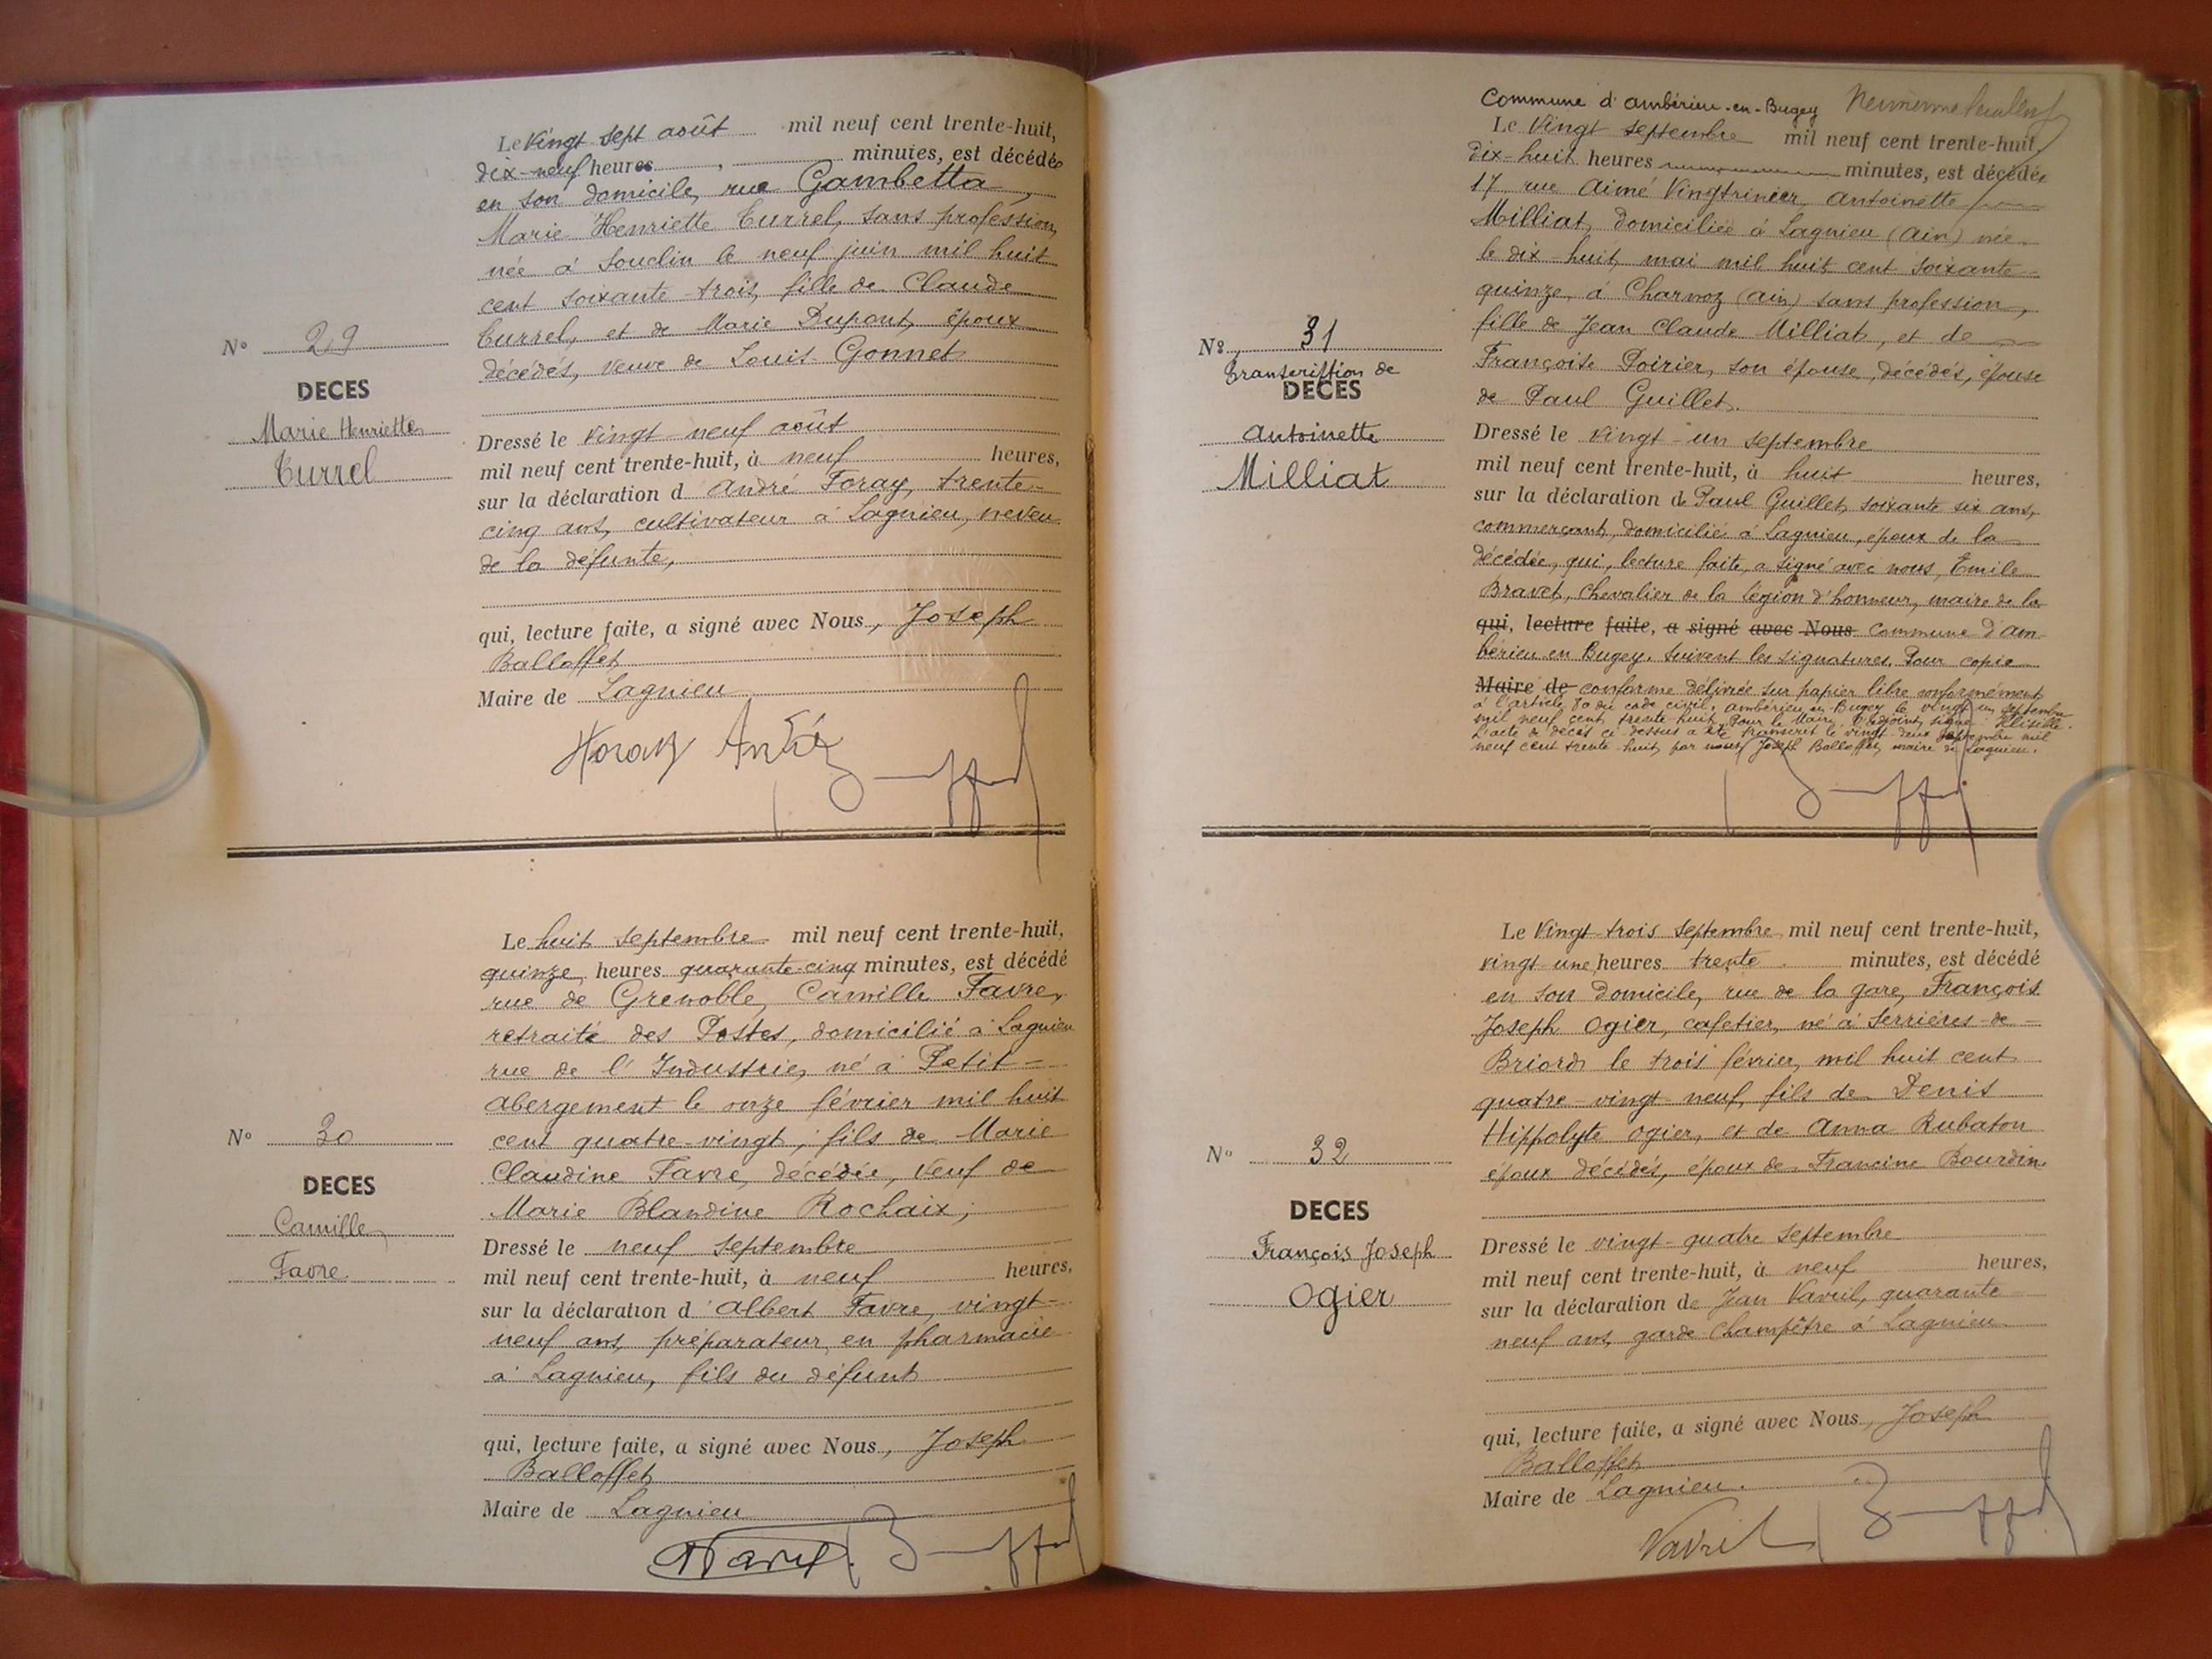 Le Vingt sept août mil neuf cent trente-huit,
dix-neuf heures, minutes, est décédée
en son domicile, rue Gambetta,
Marie Henriette Turrel, sans profession,
née à Souclin le neuf juin mil huit
cent soixante-trois, fille de Claude
Turrel, et de Marie Dupont, époux
décédés, veuve de Louis Gonnet
N° 29
DECES
Marie Henriette
Turrel
Dressé le Vingt-neuf août
mil neuf cent trente-huit, à neuf heures,
sur la déclaration d André Foray, trente-
cinq ans, cultivateur à Lagnieu, neveu
de la défunte,
qui, lecture faite, a signé avec Nous, Joseph
Balloffet
Maire de Lagnieu
Foray André
Le huit septembre mil neuf cent trente-huit,
quinze heures quarante-cinq minutes, est décédé
rue de Grenoble, Camille Favre,
retraité des Postes, domicilié à Lagnieu
rue de l'Industrie, né à Petit-
Abergement le onze février mil huit
cent quatre-vingt, fils de Marie
Claudine Favre, décédée, veuf de
Marie Blandine Rochaix;
N° 30
DECES
Camille
Favre
Dressé le neuf septembre
mil neuf cent trente-huit, à neuf heures,
sur la déclaration d'Albert Favre, vingt-
neuf ans, préparateur en pharmacie
à Lagnieu, fils du défunt
qui, lecture faite, a signé avec Nous, Joseph
Balloffet
Maire de Lagnieu
Favre
Commune d'Ambérieu-en-Bugey
Le Vingt septembre mil neuf cent trente-huit,
dix-huit heures minutes, est décédée
17 rue Aimé Vingtrinier, Antoinette
Milliat, domiciliée à Lagnieu (Ain) née
le dix-huit mai mil huit cent soixante-
quinze, à Charnoz (Ain) sans profession,
fille de Jean Claude Milliat, et de
Françoise Poirier, son épouse, décédés, épouse
de Paul Guillet.
N° 31
Transcription de
DECES
Antoinette
Milliat
Dressé le vingt-un septembre
mil neuf cent trente-huit, à huit heures,
sur la déclaration de Paul Guillet, soixante six ans,
commerçant, domicilié à Lagnieu, époux de la
décédée, qui, lecture faite, a signé avec nous, Emile
Bravet, Chevalier de la légion d'honneur, maire de la
qui, lecture faite, a signé avec Nous commune d'Am-
bérieu en Bugey. Suivent les signatures. Pour copie
Maire de conforme délivrée sur papier libre conformément
à l'article 80 du code civil. Ambérieu en Bugey le vingt un septembre
mil neuf cent trente huit. Pour le Maire, l'adjoint, signé:
L'acte de décès ci-dessus a été transcrit le vingt-deux septembre mil
neuf cent trente-huit, par nous, Joseph Balloffet, maire de Lagnieu.
Le Vingt-trois septembre mil neuf cent trente-huit,
vingt-une heures trente minutes, est décédé
en son domicile, rue de la gare, François
Joseph Ogier, cafetier, né à Serrières-de-
Briord le trois février mil huit cent
quatre-vingt-neuf, fils de Denis
Hippolyte Ogier, et de Anna Rubaton
époux décédés, époux de Francine Bourdin
N° 32
DECES
François Joseph
Ogier
Dressé le vingt-quatre septembre
mil neuf cent trente-huit, à neuf heures,
sur la déclaration de Jean Vavril, quarante
neuf ans, garde-champêtre à Lagnieu
qui, lecture faite, a signé avec Nous, Joseph
Balloffet
Maire de Lagnieu.
Vavril